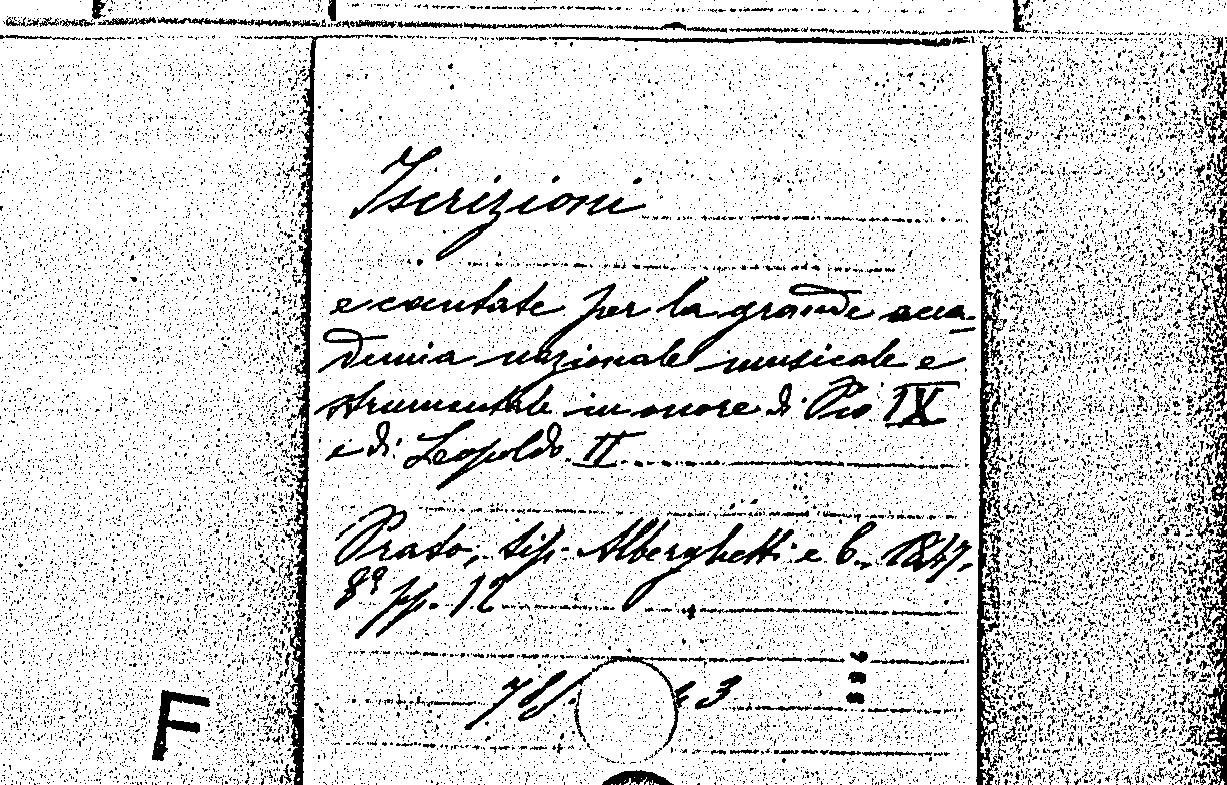 Iscrizioni
e cantate per la grande acca-
demia nazionale musicale e
strumentale in onore di Pio IX
e di Leopoldo II
Prato, tip. Alberghetti e C., 1847.
8º pp. 12
F